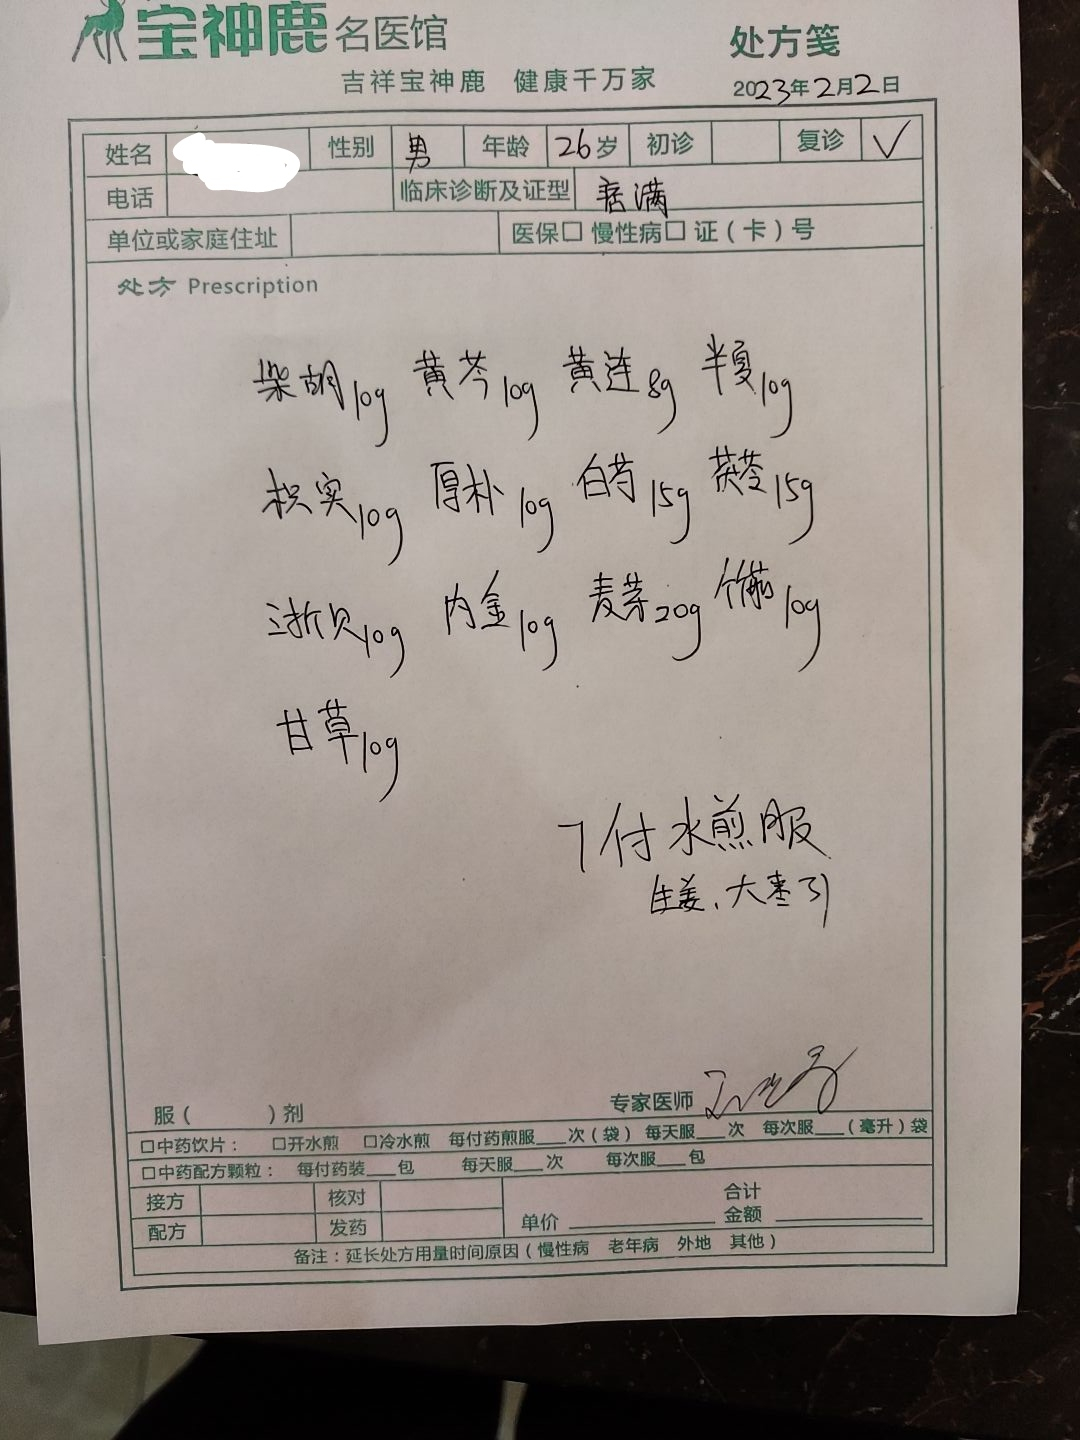 宝神鹿名医馆
处方笺
吉祥宝神鹿 健康千万家
2023年2月2日
姓名 性别 男 年龄 26岁 初诊 复诊 √
电话 临床诊断及证型 痞满
单位或家庭住址 医保□ 慢性病□ 证(卡)号
处方 Prescription
柴胡10g 黄芩10g 黄连8g 半夏10g
枳实10g 厚朴10g 白芍15g 茯苓15g
浙贝10g 内金10g 麦芽20g 竹茹10g
甘草10g
7付水煎服
生姜、大枣引
服( )剂 专家医师
□中药饮片: □开水煎 □冷水煎 每付药煎服___次(袋) 每天服___次 每次服___(毫升)袋
□中药配方颗粒: 每付药装___包 每天服___次 每次服___包
接方 核对 合计
配方 发药 单价 金额
备注:延长处方用量时间原因(慢性病 老年病 外地 其他)